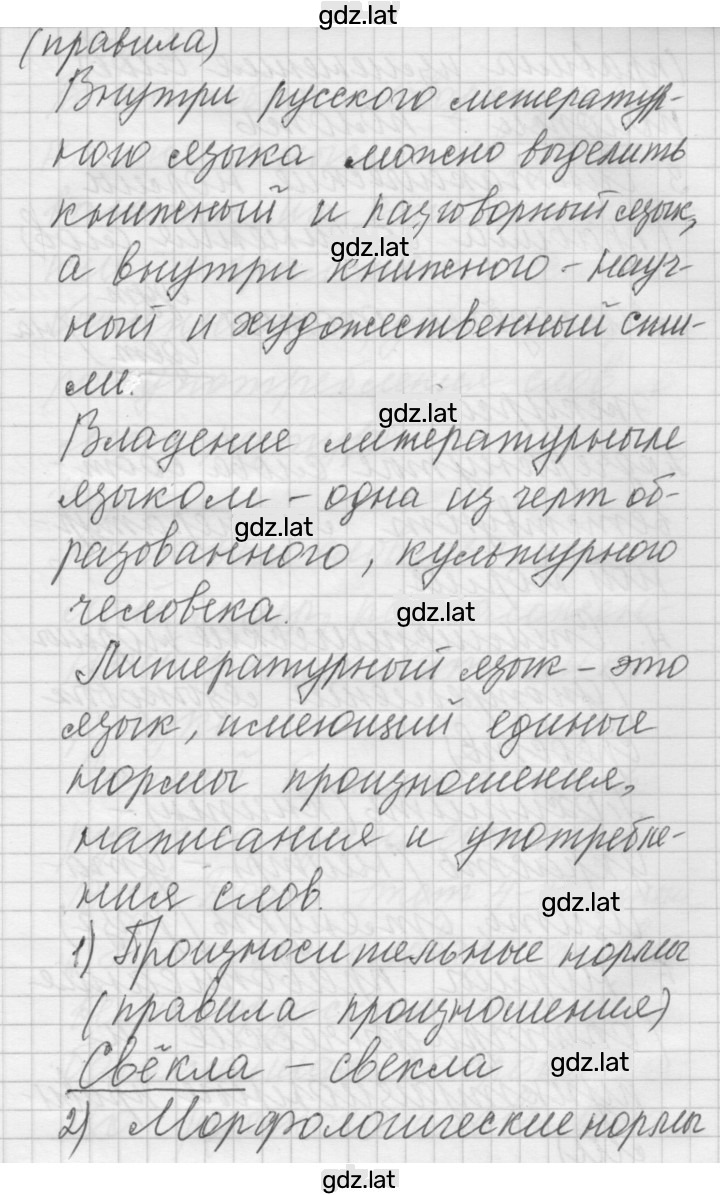 gdz.lat
(правила)
Внутри русского литератур-
ного языка можно выделить
книжный и разговорный язык,
gdz.lat
а внутри книжного – науч-
ный и художественный сти-
ли.
gdz.lat
Владение литературным
языком – одна из черт об-
gdz.lat
разованного, культурного
человека.
gdz.lat
Литературный язык – это
язык, имеющий единые
нормы произношения,
написания и употребле-
ния слов.
gdz.lat
1) Произносительные нормы
(правила произношения)
Свёкла – свекла
gdz.lat
2) Морфологические нормы
gdz.lat